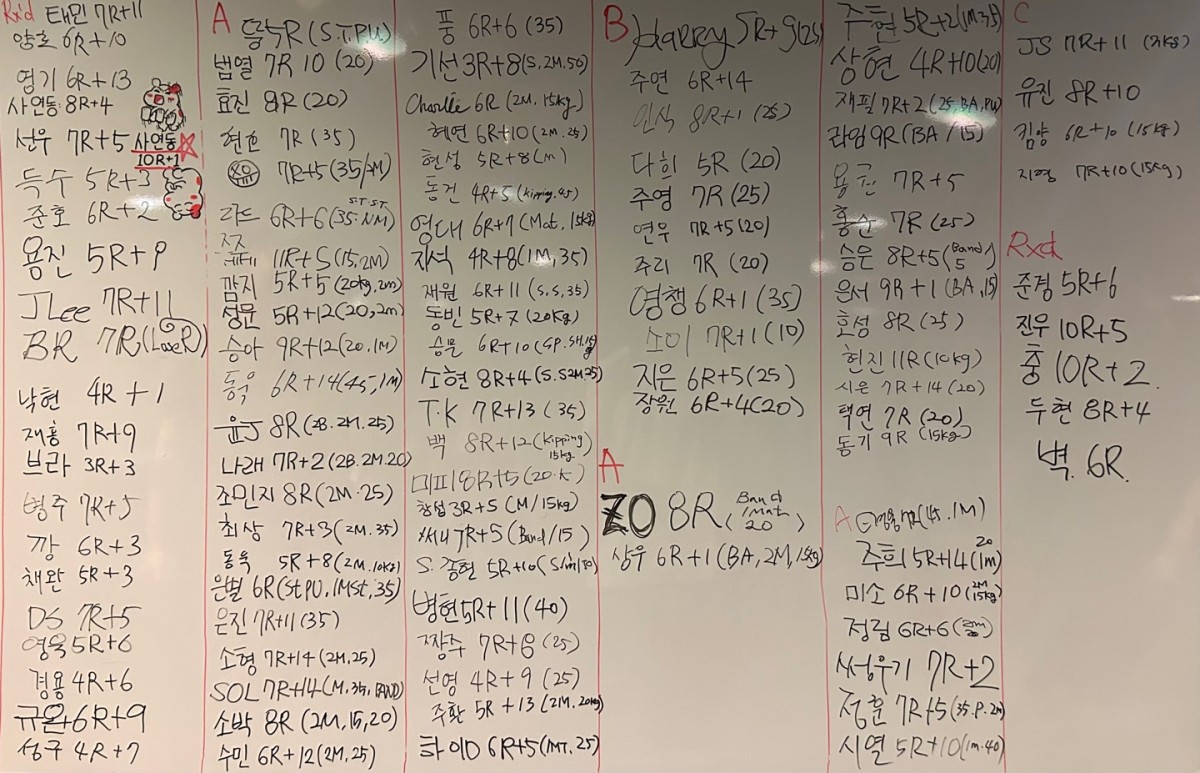 Rx'd 태민 7R+11
양호 6R+10
영기 6R+13
사연동 8R+4
선우 7R+5 사연동
10R+1
득수 5R+3
준호 6R+2
용진 5R+9
JLee 7R+11
BR 7R(LoseR)
낙현 4R+1
재홍 7R+9
브라 3R+3
병주 7R+5
깡 6R+3
채완 5R+3
DS 7R+5
영욱 5R+6
경용 4R+6
규완 6R+9
성구 4R+7
A
5R (S.T.P.U)
법열 7R 10 (20)
효진 8R (20)
현호 7R (35)
7R+5 (35/2M)
라드 6R+6 (35.NM)
S.T S.T
11R+5 (15,2M)
깜지 5R+5 (20kg, 2m)
성문 5R+12 (20, 2m)
승아 9R+12 (20.1M)
동욱 6R+14 (45, 1M)
윤J 8R (2B. 2M. 25)
나래 7R+2 (2B. 2M. 20)
조민지 8R (2M. 25)
최상 7R+3 (2M. 35)
동욱 5R+8 (2M. 10kg)
은별 6R (St PU, 1MSt, 35)
은진 7R+11 (35)
소형 7R+14 (2M. 25)
SOL 7R+14 (M. 35, BAND)
소박 8R (2M, 15, 20)
수민 6R+12 (2M. 25)
풍 6R+6 (35)
기선 3R+8 (S, 2M. 50)
Charlie 6R (2M. 15kg)
현연 6R+10 (2M. 25)
현성 5R+8 (m)
동건 4R+5 (kipping. 45)
영대 6R+7 (Mat, 15kg)
지석 4R+8 (1M, 35)
재원 6R+11 (S, S, 35)
동빈 5R+7 (20kg)
승문 6R+10
소현 8R+4
T.K 7R+13 (35)
백 8R+12 (kipping
15kg)
미피 8R+5 (20.K)
창섭 3R+5 (M/15kg)
써니 7R+5 (Band/15)
S. 강현 5R+10
병현 5R+11 (40)
짱주 7R+8 (25)
선영 4R+9 (25)
주환 5R+13 (2M. 20kg)
하이D 6R+5 (1MT. 25)
B Harry 5R+9 (25)
주연 6R+14
인식 8R+1 (25)
다희 5R (20)
주영 7R (25)
연우 7R+5 (20)
주리 7R (20)
영쟁 6R+1 (35)
소이 7R+1 (10)
지은 6R+5 (25)
장원 6R+4 (20)
A
ZO 8R (Band
/Mat
20)
상우 6R+1 (BA, 2M, 15kg)
주현 5R+2 (1M 35)
상현 4R+10 (20)
재필 7R+2 (25, BA, PU)
라임 9R (BA/15)
용곤 7R+5
홍순 7R (25)
승운 8R+5 (Band
5)
은서 9R+1 (BA, 15)
효성 8R (25)
현진 11R (10kg)
시은 7R+14 (20)
택연 7R (20)
동기 9R (15kg)
A
7R (45. 1M)
주희 5R+14 (1m)
20
미소 6R+10 (2M
15kg)
정림 6R+6
써우기 7R+2
정훈 7R+5 (35. P. 2m)
시열 5R+10 (1m. 40)
C
JS 7R+11
유진 8R+10
킴양 6R+10 (15kg)
지영 7R+10 (15kg)
Rxd
준경 5R+6
진우 10R+5
충 10R+2.
두현 8R+4
벽. 6R.